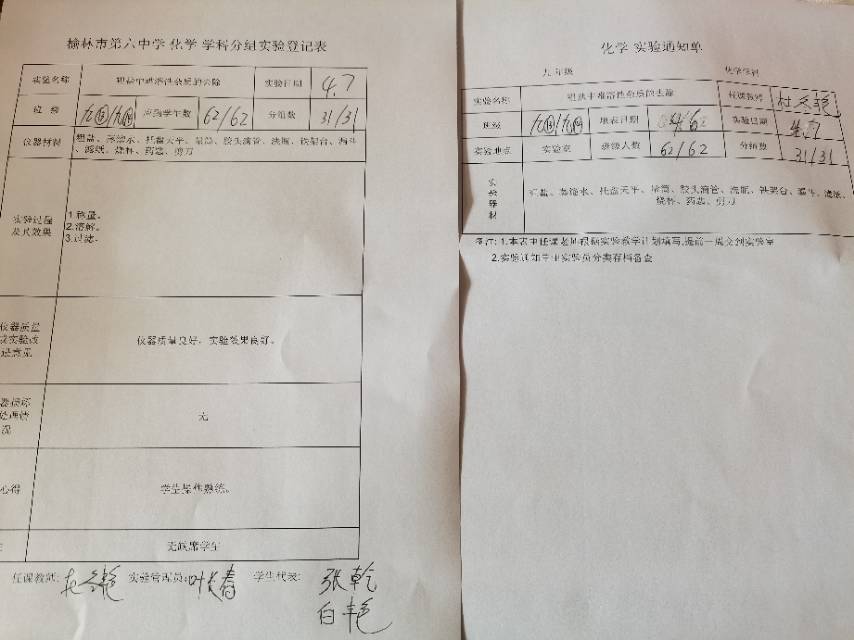 榆林市第六中学 化学 学科分组实验登记表
实验名称 粗盐中难溶性杂质的去除 实验日期 4.7
班级 九③/九④ 应到学生数 62/62 分组数 31/31
仪器材料 粗盐、蒸馏水、托盘天平、量筒、胶头滴管、烧瓶、铁架台、漏斗
、滤纸、烧杯、药匙、剪刀
实验过程
及其效果
1.称量。
2.溶解。
3.过滤。
仪器质量
或实验改
进意见
仪器质量良好，实验效果良好。
器损坏
处理情
况
无
心得
学生操作熟练。
无缺席学生
任课教师: 实验管理员: 叶长春 学生代表: 张乾
白丰艳
化学 实验通知单
九 年级 化学学科
实验名称 粗盐中难溶性杂质的去除 任课教师
班级 九③/九④ 填表日期 实验日期
实验地点 实验室 班级人数 62/62 分组数 31/31
实验器材
粗盐、蒸馏水、托盘天平、量筒、胶头滴管、烧瓶、铁架台、漏斗、滤纸、
烧杯、药匙、剪刀
备注: 1.本表由任课老师根据实验教学计划填写,提前一周交到实验室
2.实验通知单由实验员分类存档备查